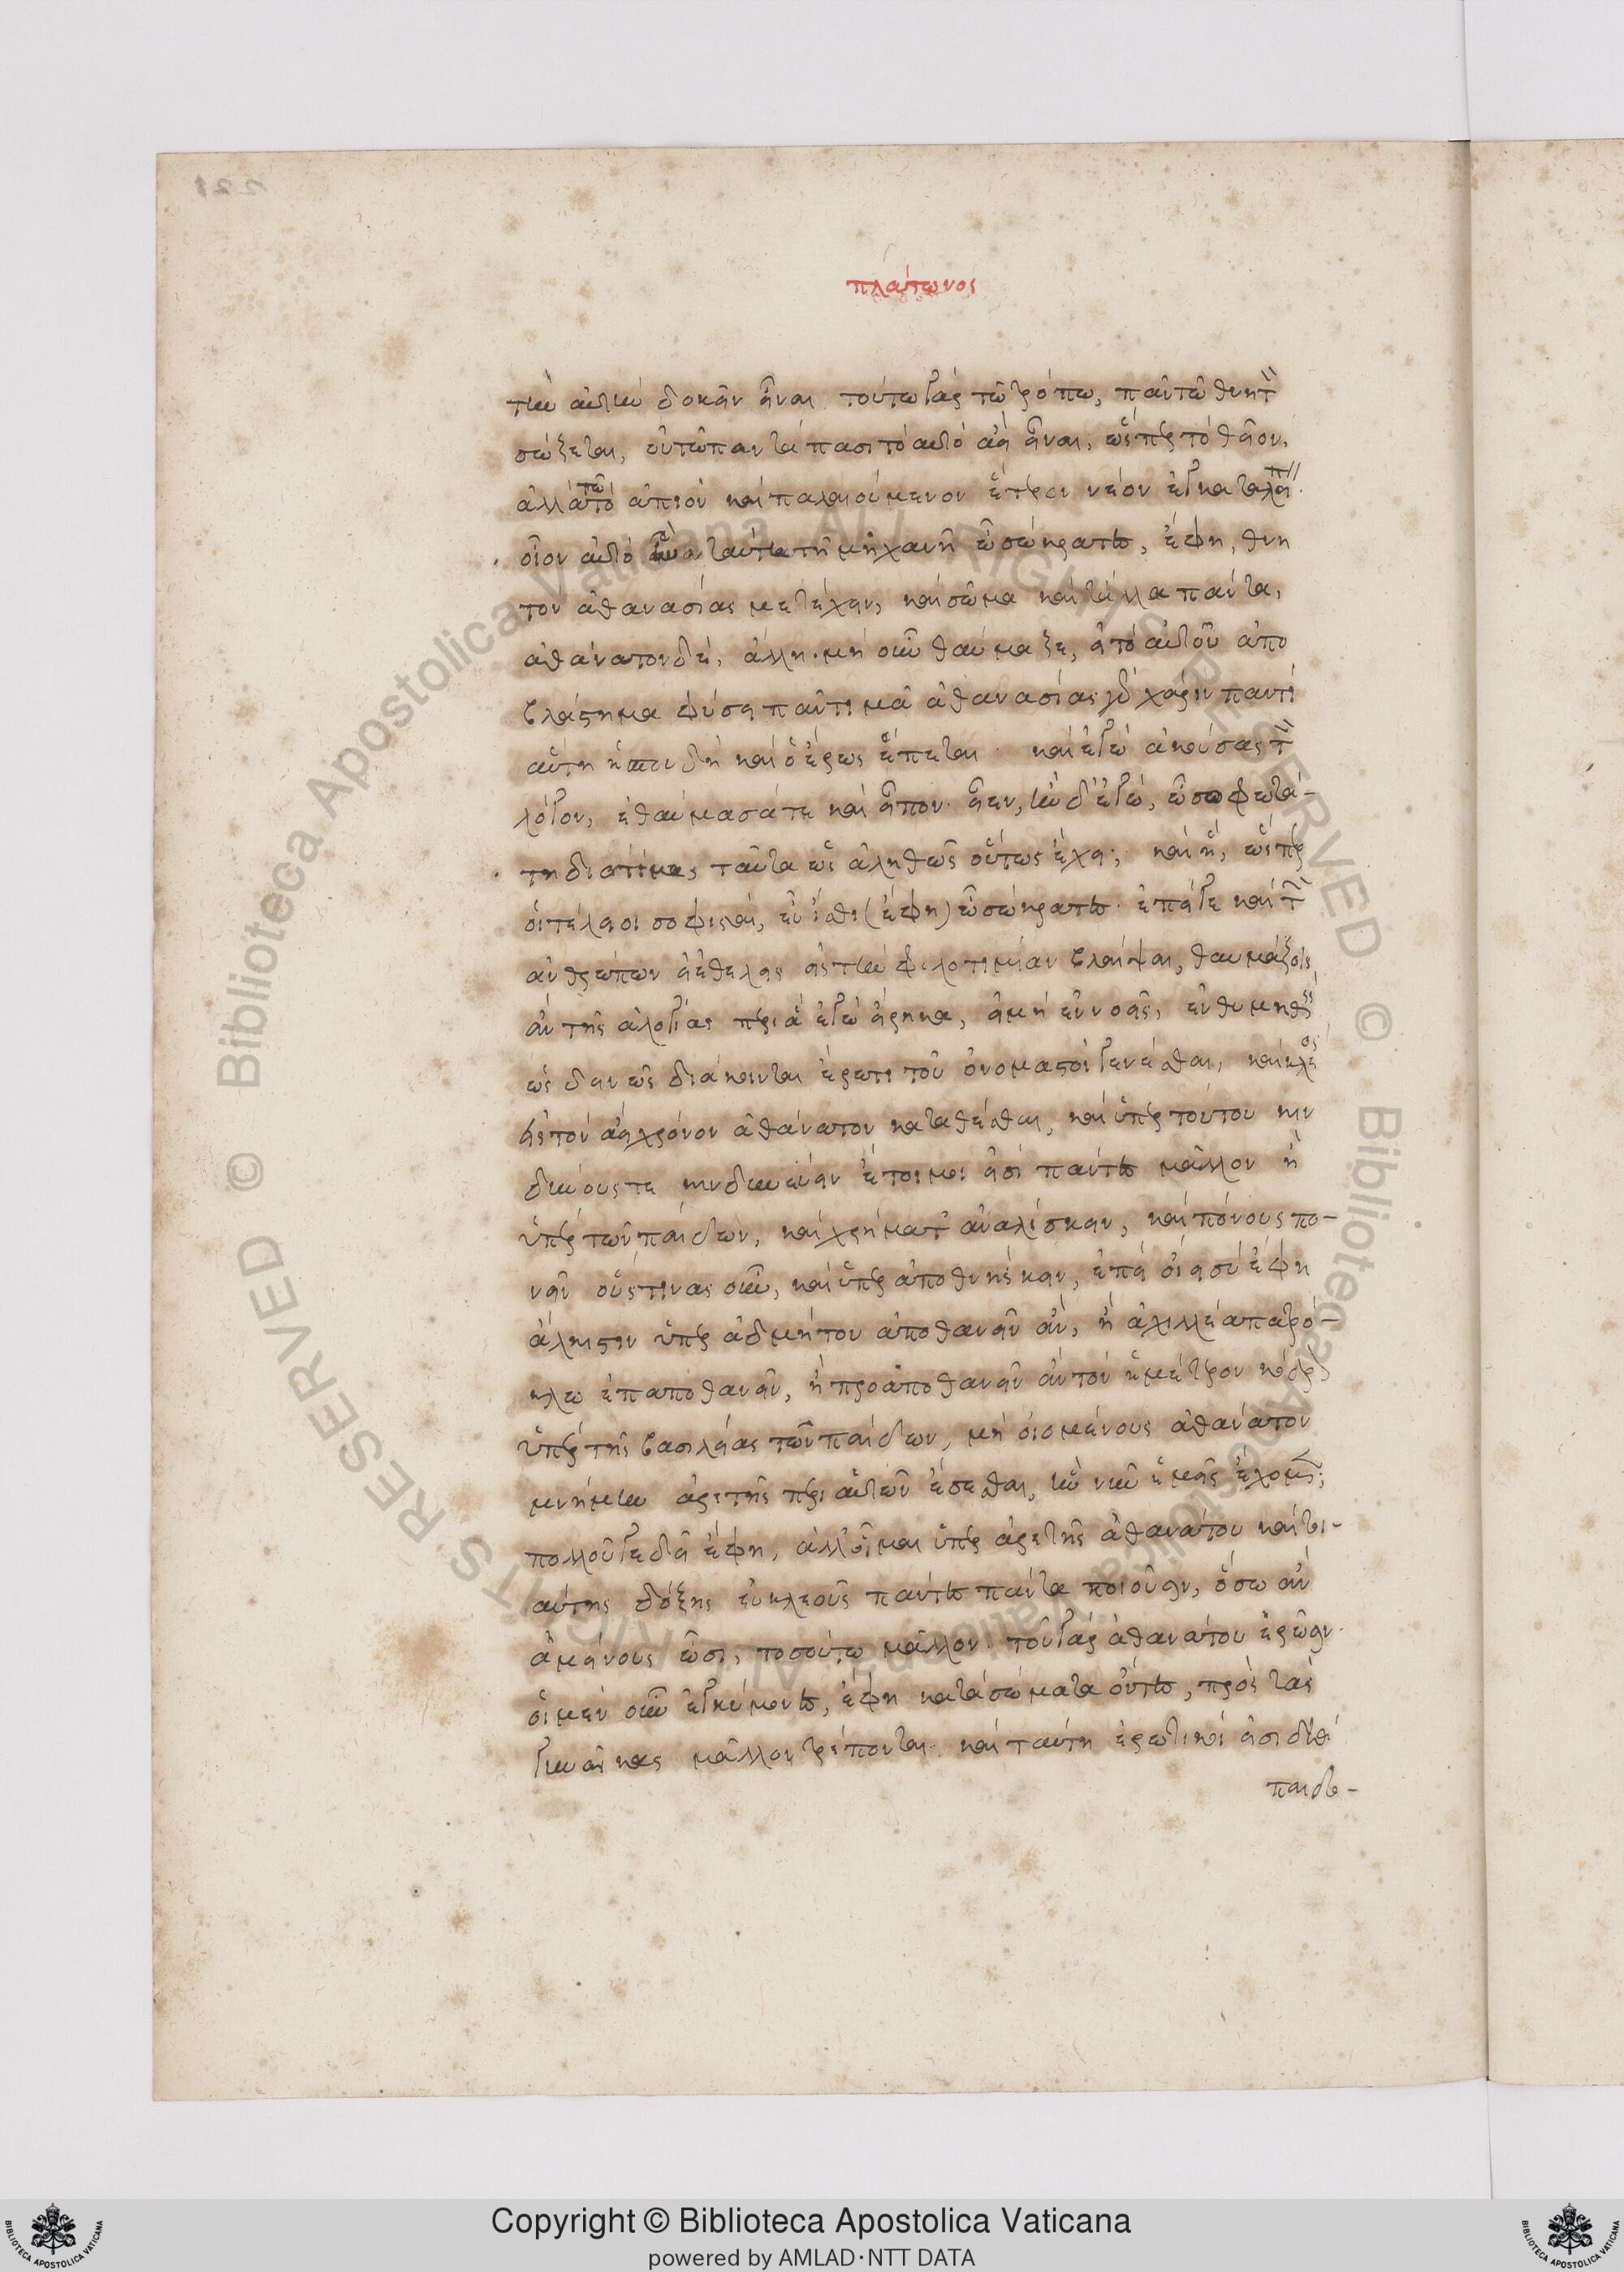 πλάτωνος
τὴν αὐτὴν δοκεῖν εἶναι. τούτω γὰρ τῶ τρόπω, πᾶν τὸ θνητὸν
σώζεται, οὐ τῶ παντάπασι τὸ αὐτὸ ἀεὶ εἶναι, ὥσπερ τὸ θεῖον.
ἀλλὰ τῶ τὸ ἀπιὸν καὶ παλαιούμενον ἕτερον νέον ἐγκαταλείπειν
οἷον αὐτὸ ἦν. ταύτη τῆ μηχανῆ ὦ σώκρατες, ἔφη, θνη
τὸν ἀθανασίας μετέχειν, καὶ σῶμα καὶ τἄλλα πάντα,
ἀθάνατον δὲ, ἄλλη. μὴ οὖν θαύμαζε, εἰ τὸ αὐτοῦ ἀπο
βλάστημα φύσει πᾶν τιμᾶ ἀθανασίας γὰρ χάριν παντὶ
αὕτη ἡ σπουδὴ καὶ ὁ ἔρως ἕπεται. καὶ ἐγὼ ἀκούσας τὸν
λόγον, ἐθαύμασά τε καὶ εἶπον. εἶεν, ἦν δ' ἐγὼ, ὦ σοφωτά-
τη διοτίμα, ταῦτα ὡς ἀληθῶς οὕτως ἔχει; καὶ ἣ, ὥσπερ
οἱ τέλειοι σοφισταὶ, εὖ ἴσθι (ἔφη) ὦ σώκρατες. ἐπεί γε καὶ τῶν
ἀνθρώπων εἰ ἐθέλεις εἰς τὴν φιλοτιμίαν βλέψαι, θαυμάζοις
ἂν τῆς ἀλογίας περὶ ἃ ἐγὼ εἴρηκα, εἰ μὴ ἐννοεῖς, ἐνθυμηθεὶς
ὡς δεινῶς διάκεινται ἔρωτι τοῦ ὀνομαστοὶ γενέσθαι, καὶ κλέος
εἰς τὸν ἀεὶ χρόνον ἀθάνατον καταθέσθαι, καὶ ὑπὲρ τούτου κιν
δύνους τε κινδυνεύειν ἕτοιμοί εἰσι πάντες μᾶλλον ἢ
ὑπὲρ τῶν παίδων, καὶ χρήματ' ἀναλίσκειν, καὶ πόνους πο-
νεῖν οὕστινας οὖν, καὶ ὑπὲρ ἀποθνήσκειν, ἐπεὶ οἴει σὺ ἔφη
ἄλκηστιν ὑπὲρ ἀδμήτου ἀποθανεῖν ἂν, ἢ ἀχιλλέα πατρό-
κλω ἐπαποθανεῖν, ἢ προαποθανεῖν ἂν τὸν ἡμέτερον κόδρον
ὑπὲρ τῆς βασιλείας τῶν παίδων, μὴ οἰομένους ἀθάνατον
μνήμην ἀρετῆς περὶ αὐτῶν ἔσεσθαι, ἣν νῦν ἡμεῖς ἔχομεν;
πολλοῦ γε δεῖ ἔφη, ἀλλ' οἶμαι ὑπὲρ ἀρετῆς ἀθανάτου καὶ τοι-
αύτης δόξης εὐκλεοῦς πάντες πάντα ποιοῦσιν, ὅσω ἂν
ἀμείνους ὦσι, τοσούτω μᾶλλον. τοῦ γὰρ ἀθανάτου ἐρῶσιν.
οἱ μὲν οὖν ἐγκύμονες, ἔφη κατὰ σώματα ὄντες, πρὸς τὰς
γυναῖκας μᾶλλον τρέπονται. καὶ ταύτη ἐρωτικοί εἰσι διὰ
παιδο-